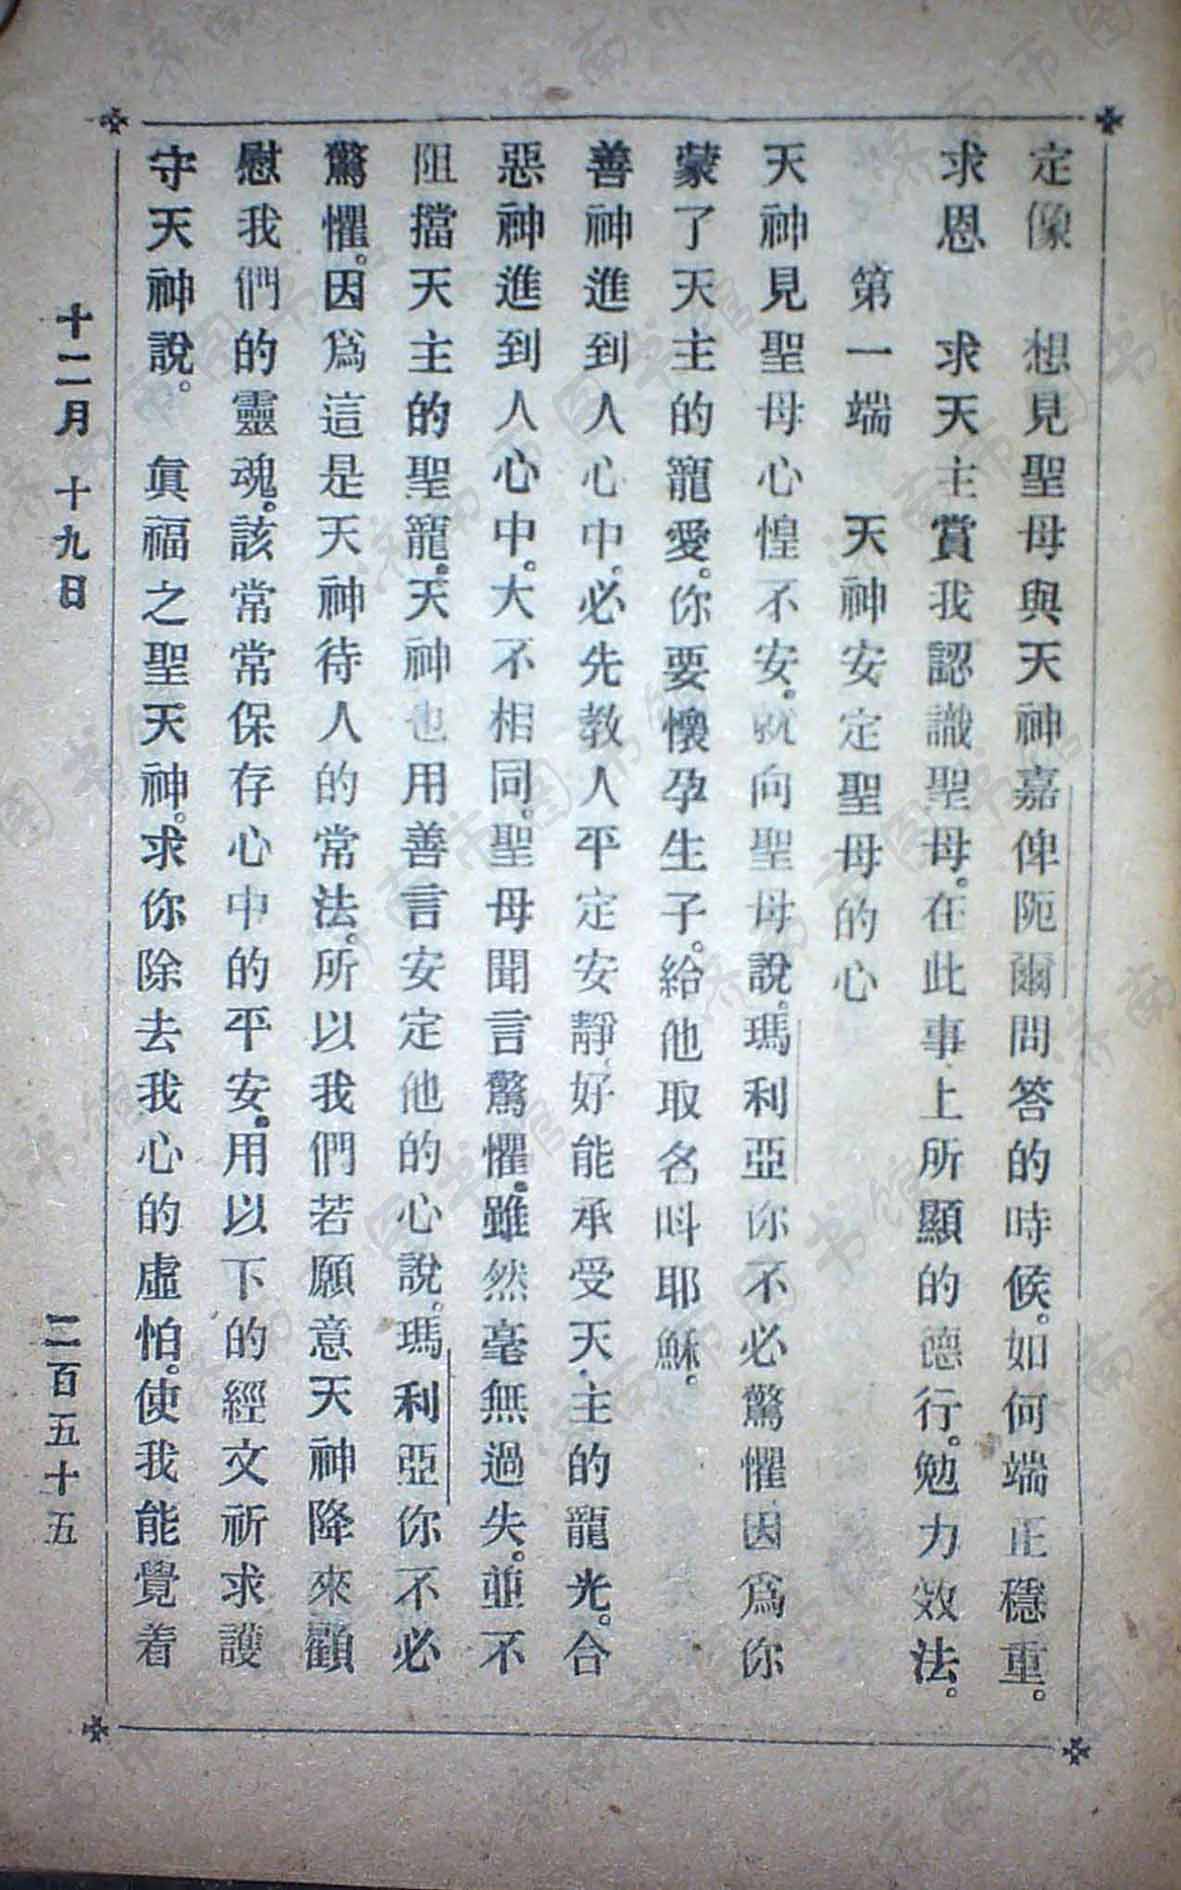 定像　想見聖母與天神嘉俾阨爾問答的時候。如何端正穩重。
求恩　求天主賞我認識聖母。在此事上所顯的德行。勉力效法。
第一端　天神安定聖母的心
天神見聖母心惶不安。就向聖母說。瑪利亞你不必驚懼因爲你
蒙了天主的寵愛。你要懷孕生子。給他取名呌耶穌。
善神進到人心中。必先教人平定安靜。好能承受天主的寵光。合
惡神進到人心中。大不相同。聖母聞言驚懼。雖然毫無過失。並不
阻擋天主的聖寵。天神也用善言安定他的心說。瑪利亞你不必
驚懼。因爲這是天神待人的常法。所以我們若願意天神降來顧
慰我們的靈魂。該常常保存心中的平安。用以下的經文祈求護
守天神說。　眞福之聖天神。求你除去我心的虛怕。使我能覺着
十二月　十九日　二百五十五
济南市图书馆